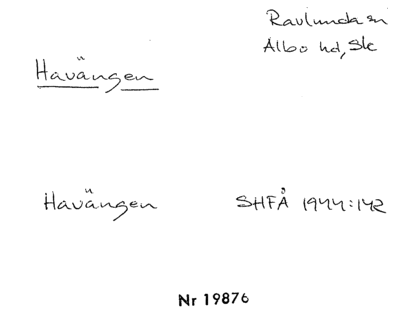 Ravlunda sn
Albo hd, Sk
Havängen
Havängen SHFÅ 1944:142
Nr 19876